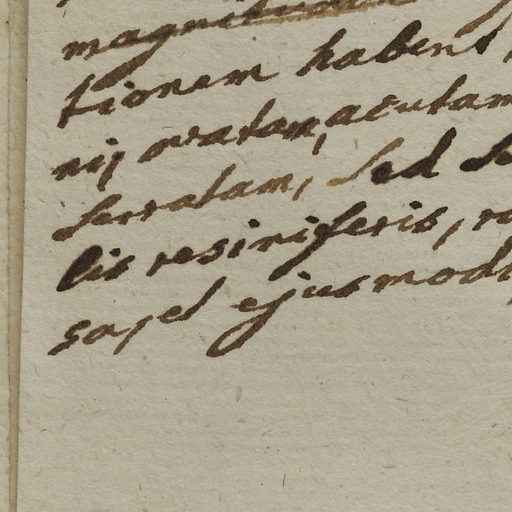 magnitudine
tionem habens
nij ovatam, acutam
serratam, sed se
lis resiniferis, ro
sa, et ejusmodi